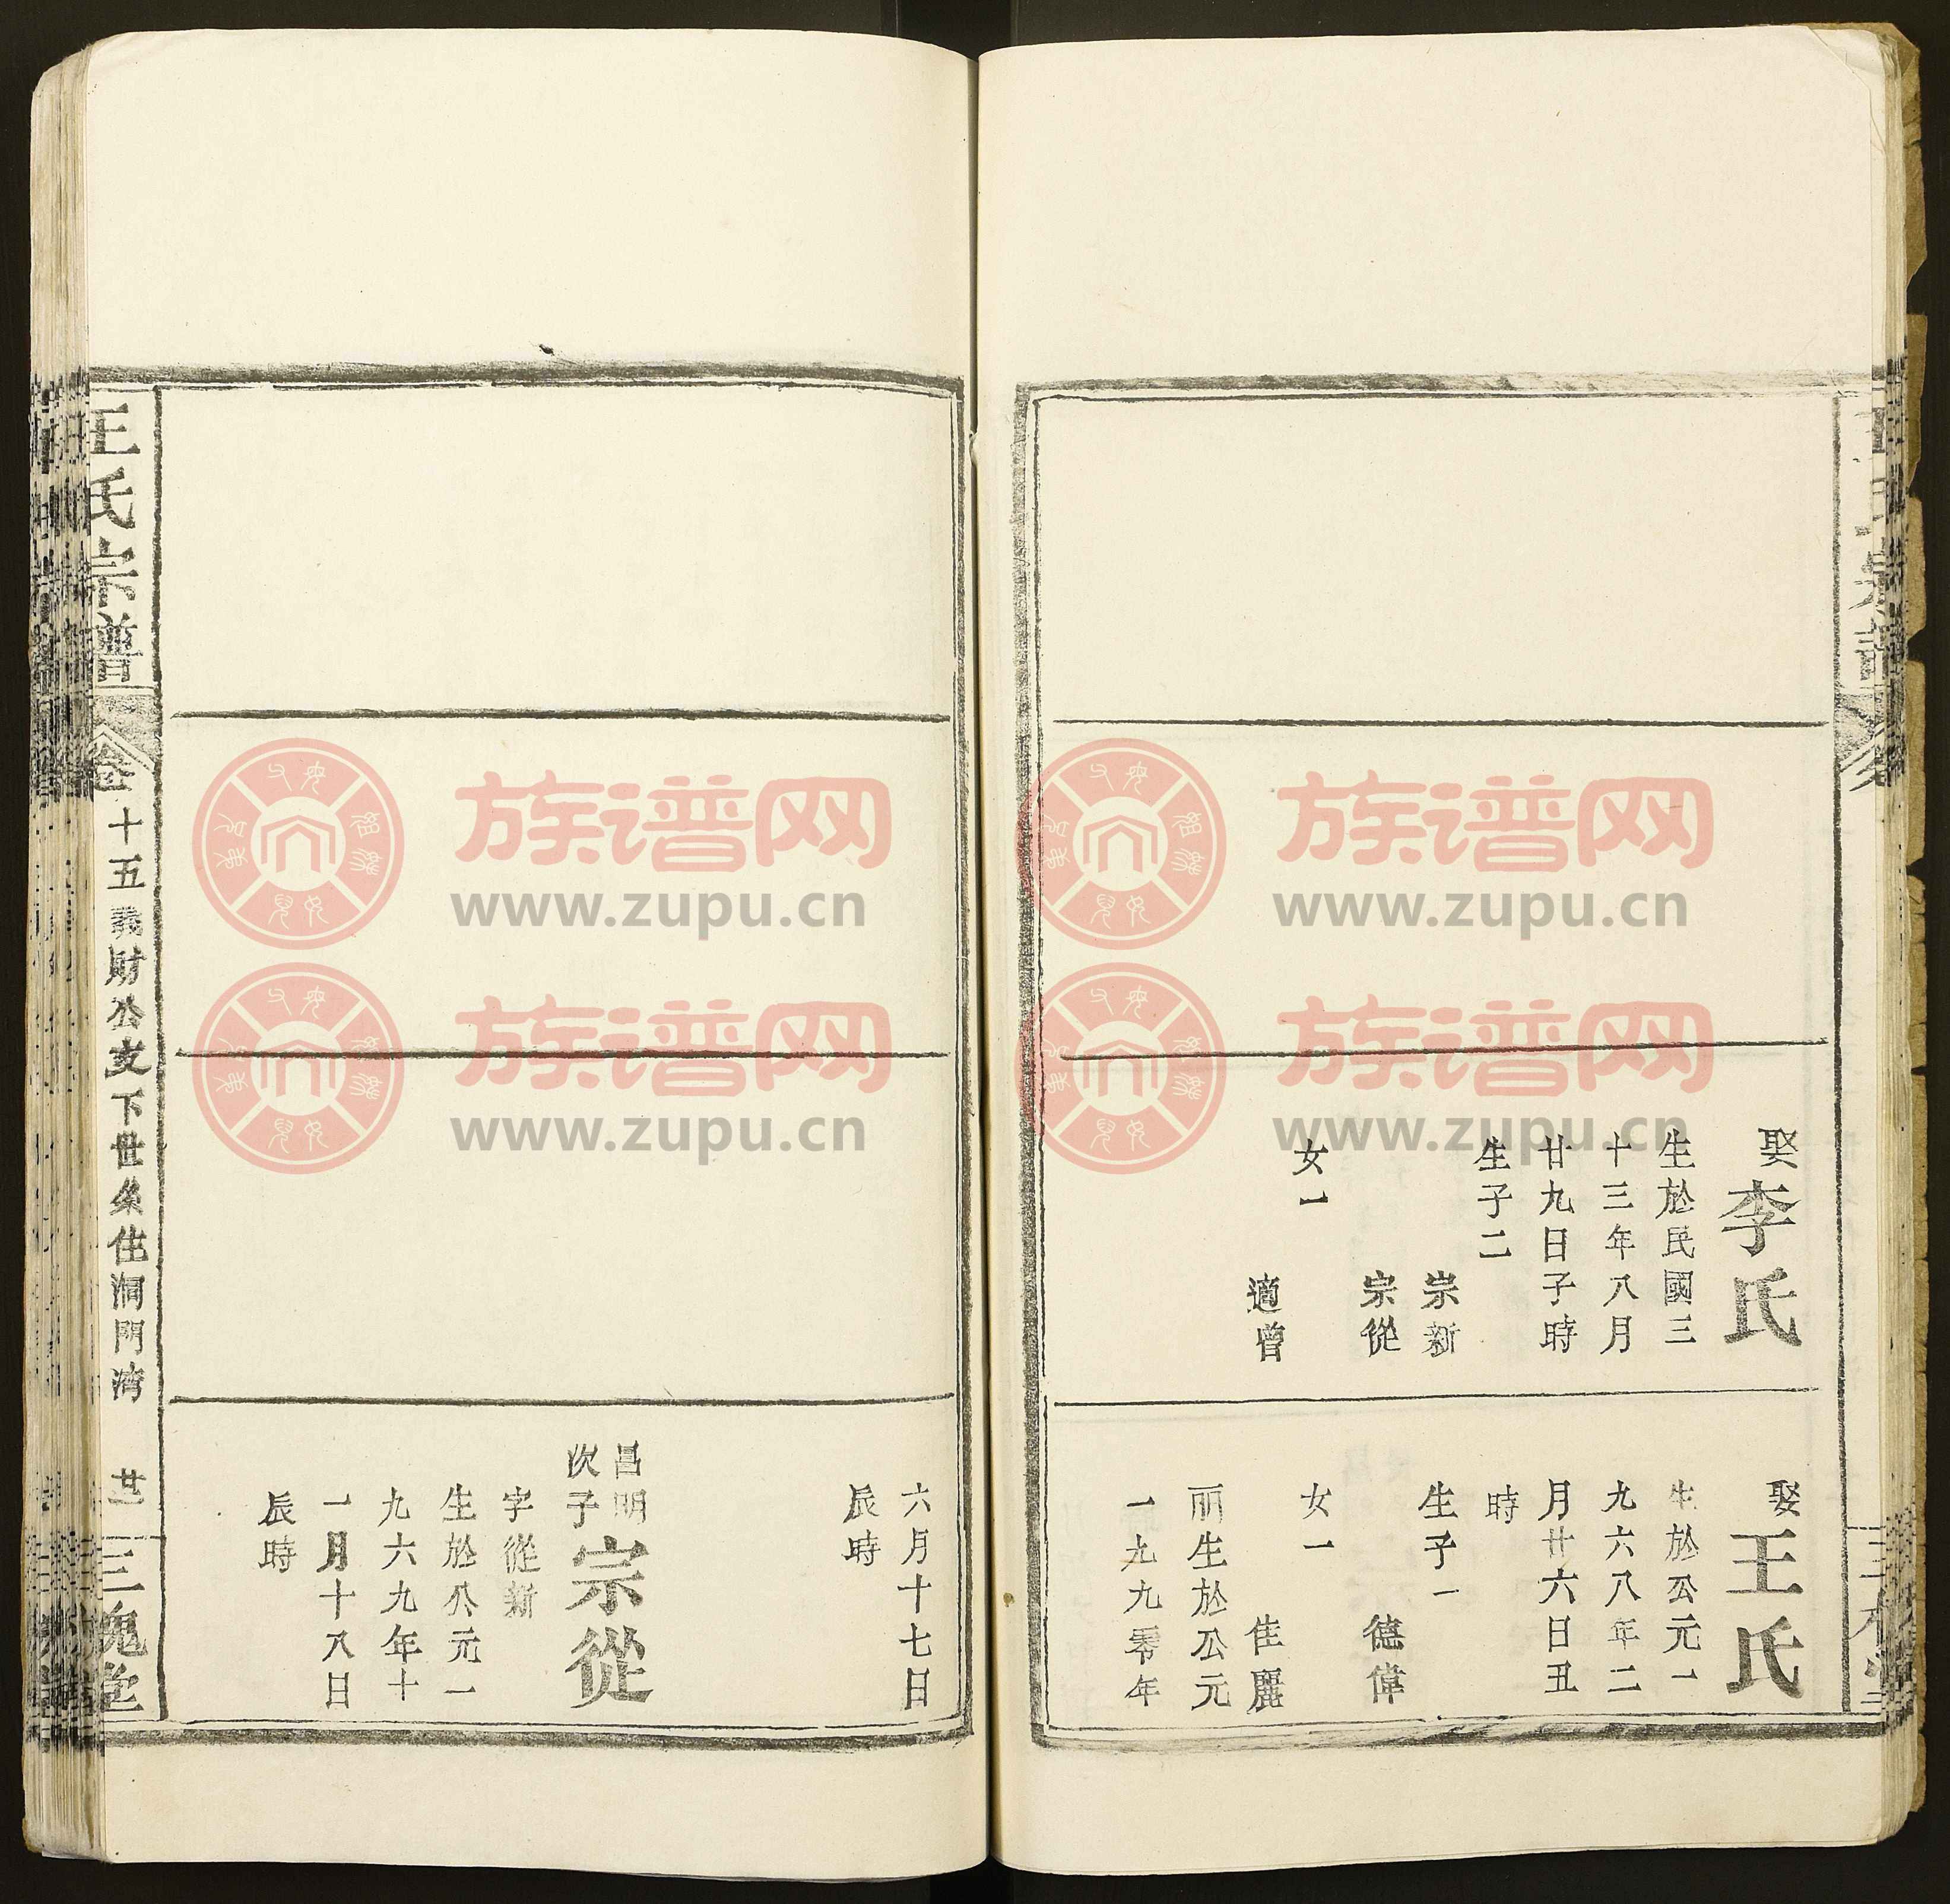 娶李氏
生於民國三
十三年八月
廿九日子時
生子二
宗新
宗從
女一
適曾
娶王氏
生於公元一
九六八年二
月廿六日丑
時
生子一
德偉
女一
佳麗
丽生於公元
一九九零年
六月十七日
辰時
昌明
次子
宗從
字從新
生於公元一
九六九年十
一月十八日
辰時
王氏宗譜
卷十五義財公支下世系住洞門湾
廿一
三槐堂
族谱网
www.zupu.cn
族谱网
www.zupu.cn
族谱网
www.zupu.cn
族谱网
www.zupu.cn